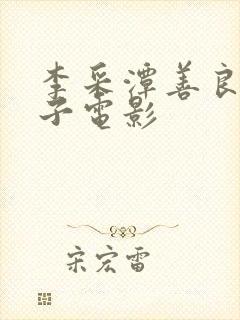 李采潭善良
子電影
宋宏雷